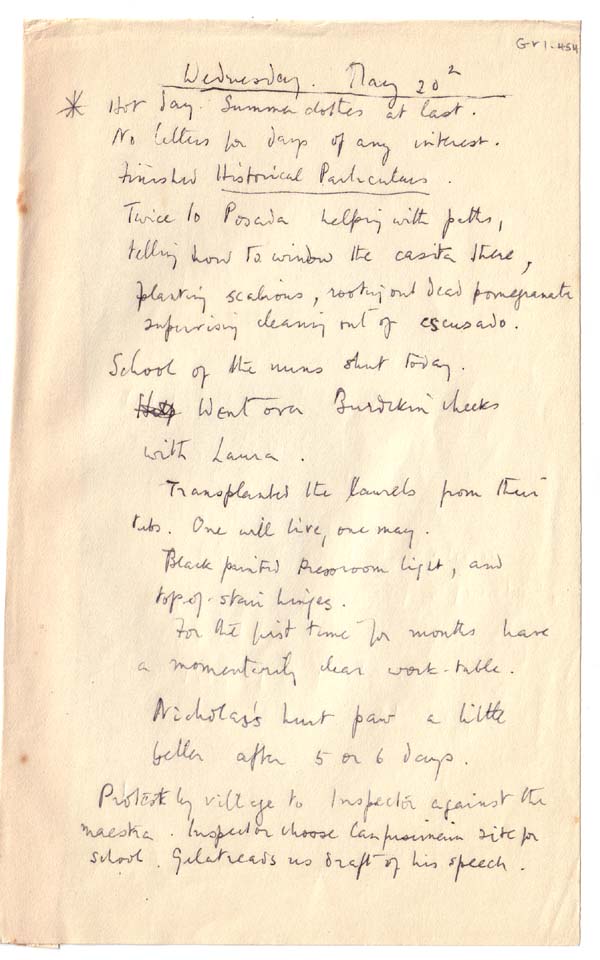 Gr1.454
Wednesday. May 20
* Hot day. Summer clothes at last.
No letters for days of any interest.
Finished Historical Particulars.
Twice to Posada helping with paths,
telling how to window the casita there,
planting scabious, rooting out dead pomegranate
supervising cleaning out of escusado.
School of the nuns shut today.
Went over Burdekin cheeks
with Laura.
Transplanted the laurels from their
tubs. One will live, one may.
Black painted Pressroom light, and
top-of-stair hinges.
For the first time for months have
a momentarily clear work-table.
Nicholas's hurt paw a little
better after 5 or 6 days.
Protest by village to Inspector against the
maestra. Inspector choose site for
school. Gelat reads us draft of his speech.